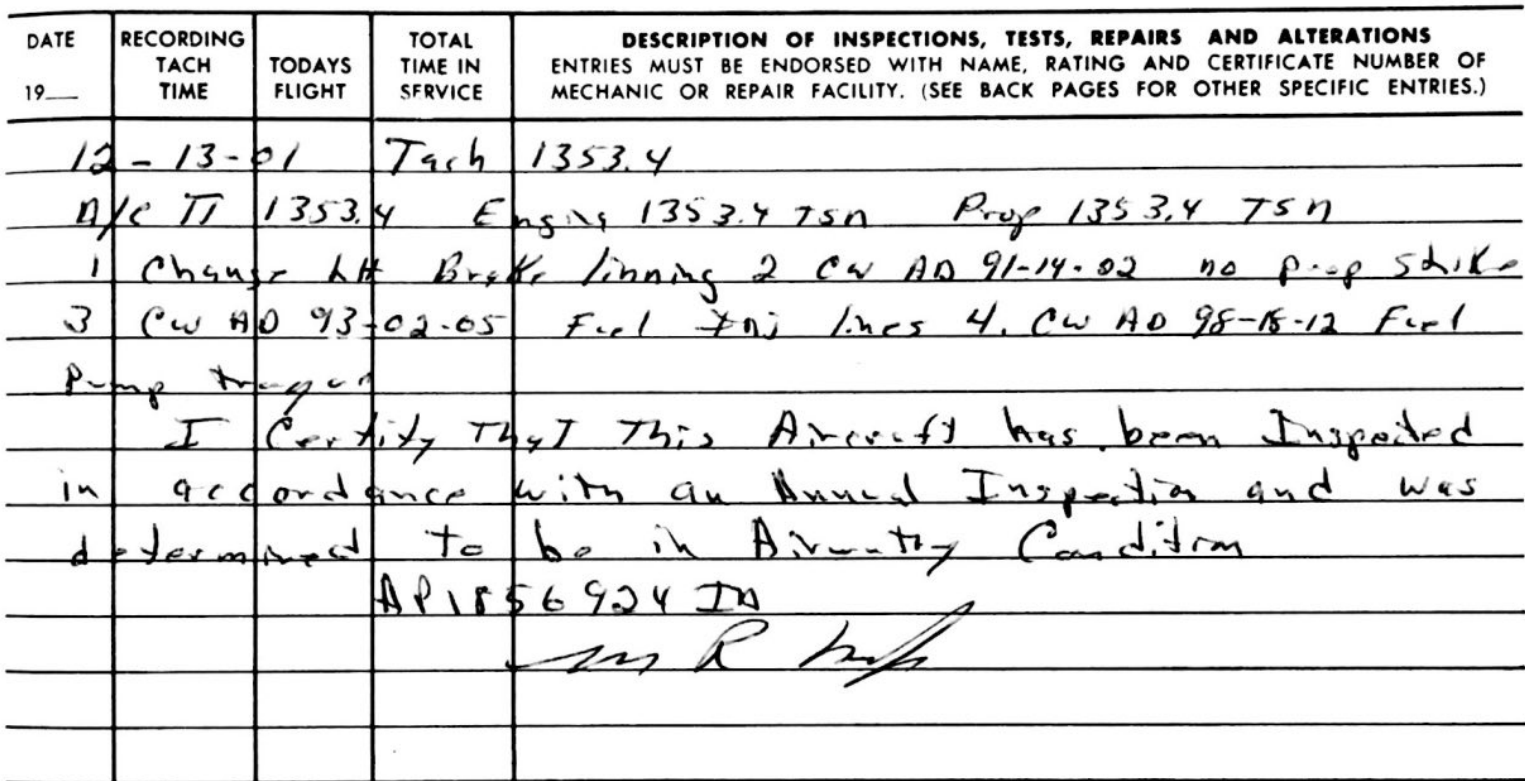 DATE
19__
RECORDING TACH TIME
TODAYS FLIGHT
TOTAL TIME IN SERVICE
DESCRIPTION OF INSPECTIONS, TESTS, REPAIRS AND ALTERATIONS
ENTRIES MUST BE ENDORSED WITH NAME, RATING AND CERTIFICATE NUMBER OF
MECHANIC OR REPAIR FACILITY. (SEE BACK PAGES FOR OTHER SPECIFIC ENTRIES.)
12-13-01 Tach 1353.4
A/C TT 1353.4 Engine 1353.4 TSN Prop 1353.4 TSN
1 Change LH Brake linning 2 CW AD 91-14-02 no prop strike
3 CW AD 93-02-05 Fuel Inj lines 4. CW AD 98-18-12 Fuel
Pump
I Certify That This Aircraft has been Inspected
in accordance with an Annual Inspection and was
determined to be in Airworthy Condition
AP1856924 IA